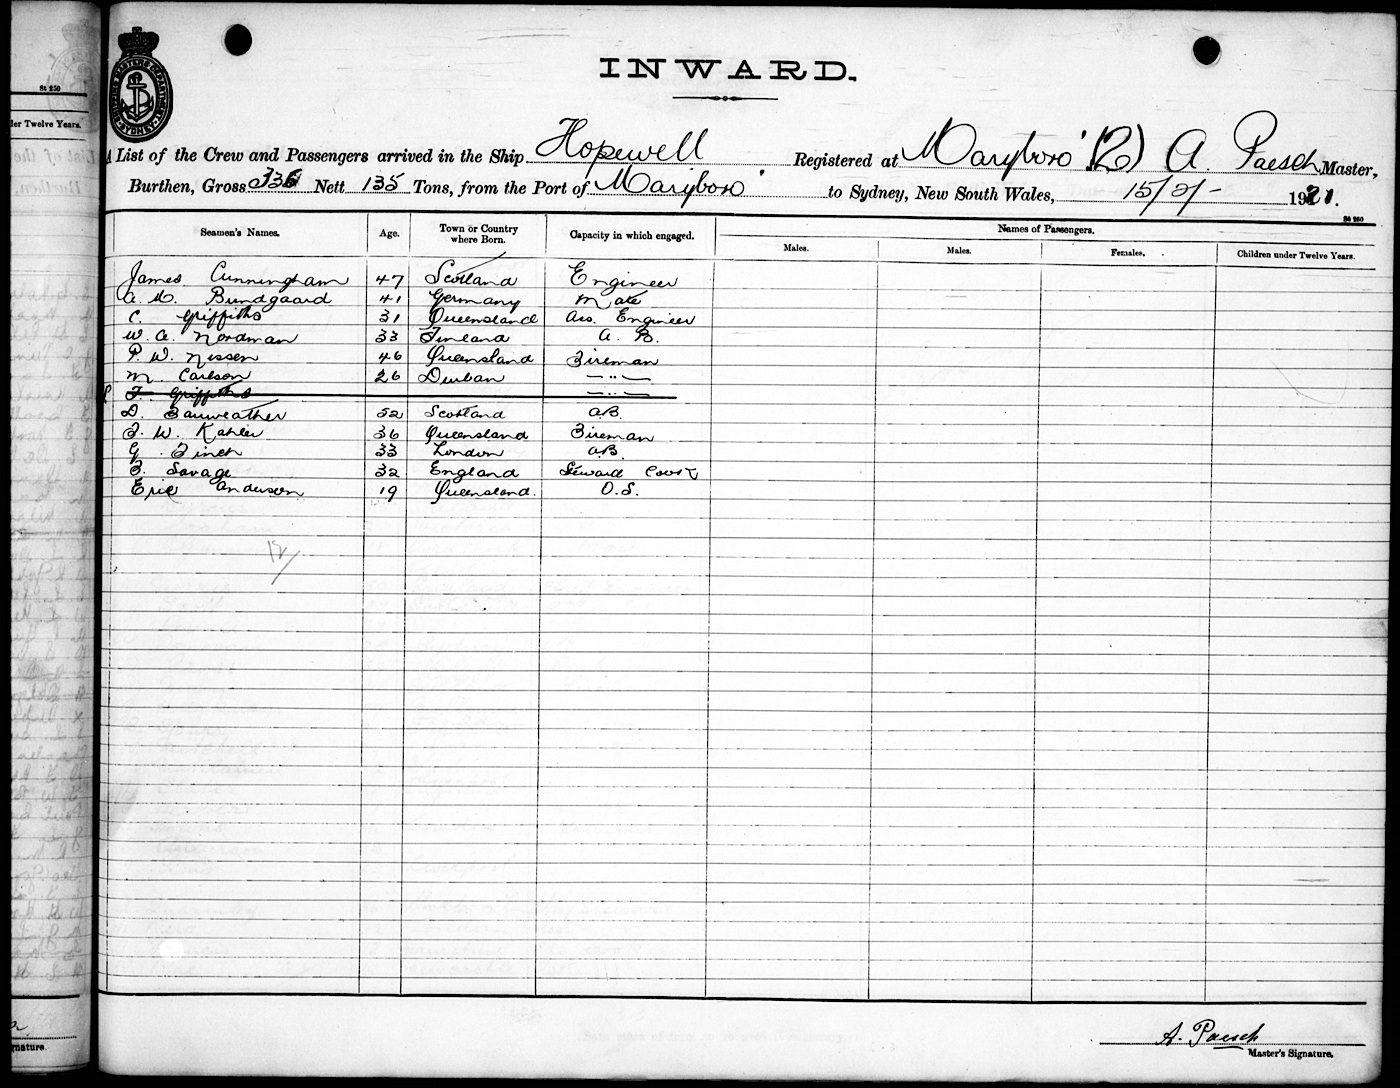 St 250
der Twelve Years.
SHIPPING MASTERS DEPARTMENT SYDNEY
INWARD.
A List of the Crew and Passengers arrived in the Ship Hopewell Registered at Maryboro' (2) A Paesch Master,
Burthen, Gross 336 Nett 135 Tons, from the Port of Maryboro' to Sydney, New South Wales, 15/2/- 1921.
St 250
Seamen's Names. Age. Town or Country where Born. Capacity in which engaged. Names of Passengers.
Males. Males. Females. Children under Twelve Years.
James Cunningham 47 Scotland Engineer
A. M. Bundgaard 41 Germany Mate
C. Griffiths 31 Queensland Ass. Engineer
W. A. Nordman 33 Finland A. B.
P. W. Nissen 46 Queensland Fireman
M. Carlson 26 Durban — " —
F. Griffiths — " —
D. Fairweather 52 Scotland AB.
F. W. Kahler 36 Queensland Fireman
G. Finch 33 London AB.
F. Savage 32 England Steward Cook
Eric Andersen 19 Queensland. O.S.
12/
A. Paesch
Master's Signature.
gnature.